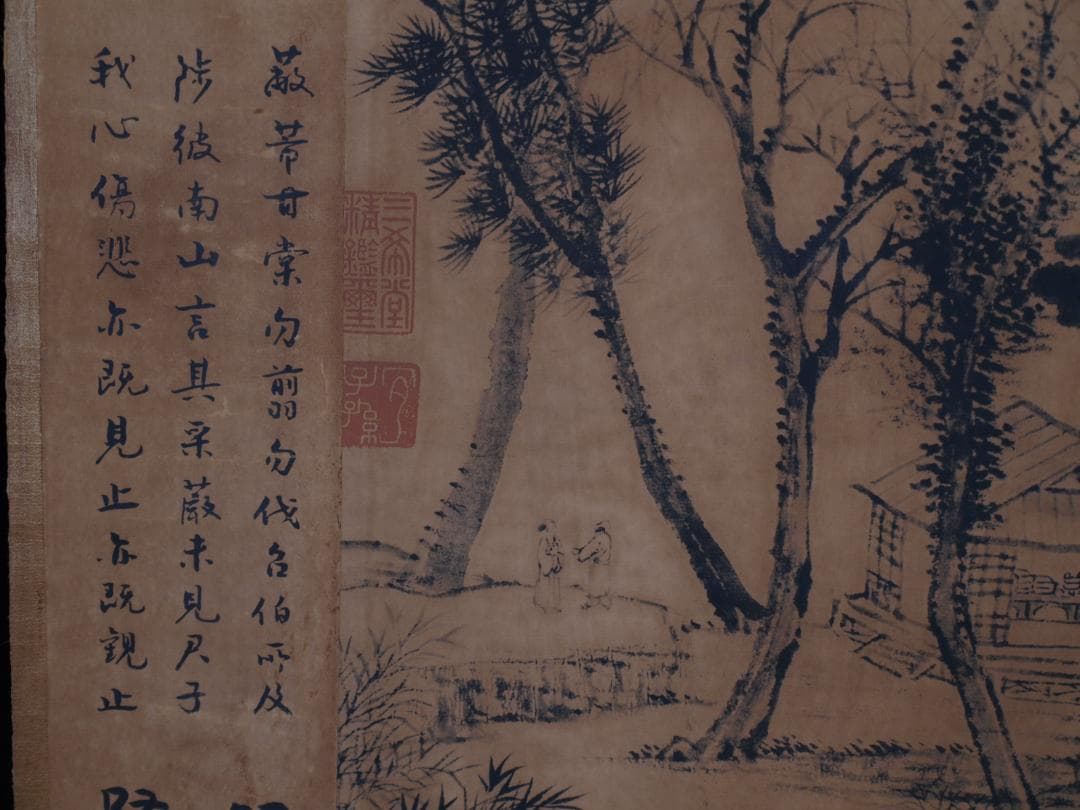 蔽芾甘棠勿翦勿伐召伯所及
陟彼南山言其采蕨未見君子
我心傷悲亦既見止亦既覯止
三希堂
精鑑璽
宜
子孫